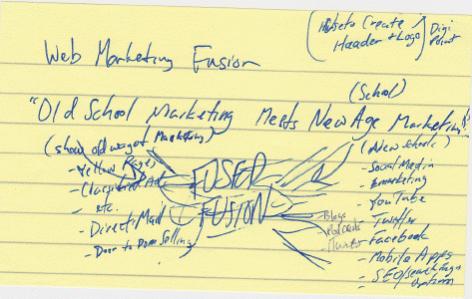 to Create Digi
Header + Logo Point
Web Marketing Fusion
(School)
"Old School Marketing Meets New Age Marketing"
(show old way of Marketing)
- Yellow Pages
- Classified Ad
- etc.
- Direct Mail
- Door to Door Selling
FUSED
FUSION
- Blogs
- Twitter
(New School)
- Social Media
- Emarketing
- YouTube
- Twitter
- Facebook
- Mobile Apps
- SEO/search engine